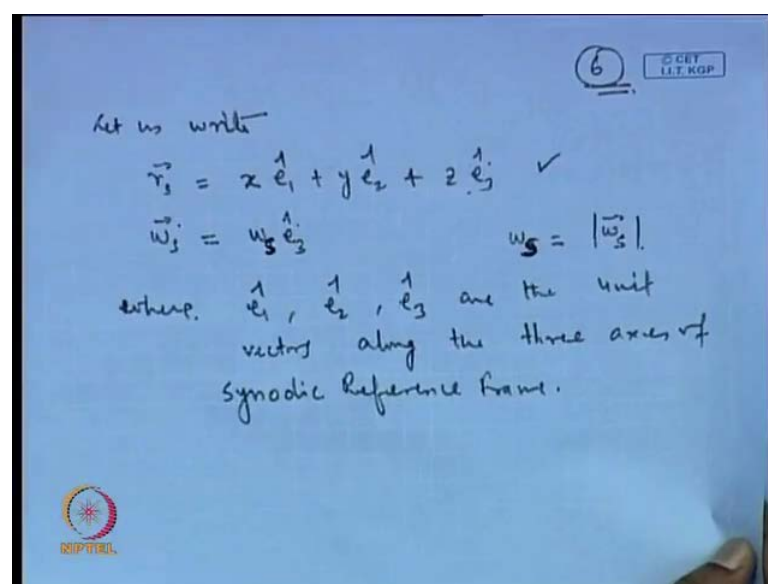 6
© CET
I.I.T. KGP
Let us write
r⃗ₛ = x ê₁ + y ê₂ + z ê₃ ✓
w⃗ₛ = wₛ ê₃    wₛ = |w⃗ₛ|.
where. ê₁, ê₂, ê₃ are the unit
vectors along the three axes of
Synodic Reference Frame.
NPTEL